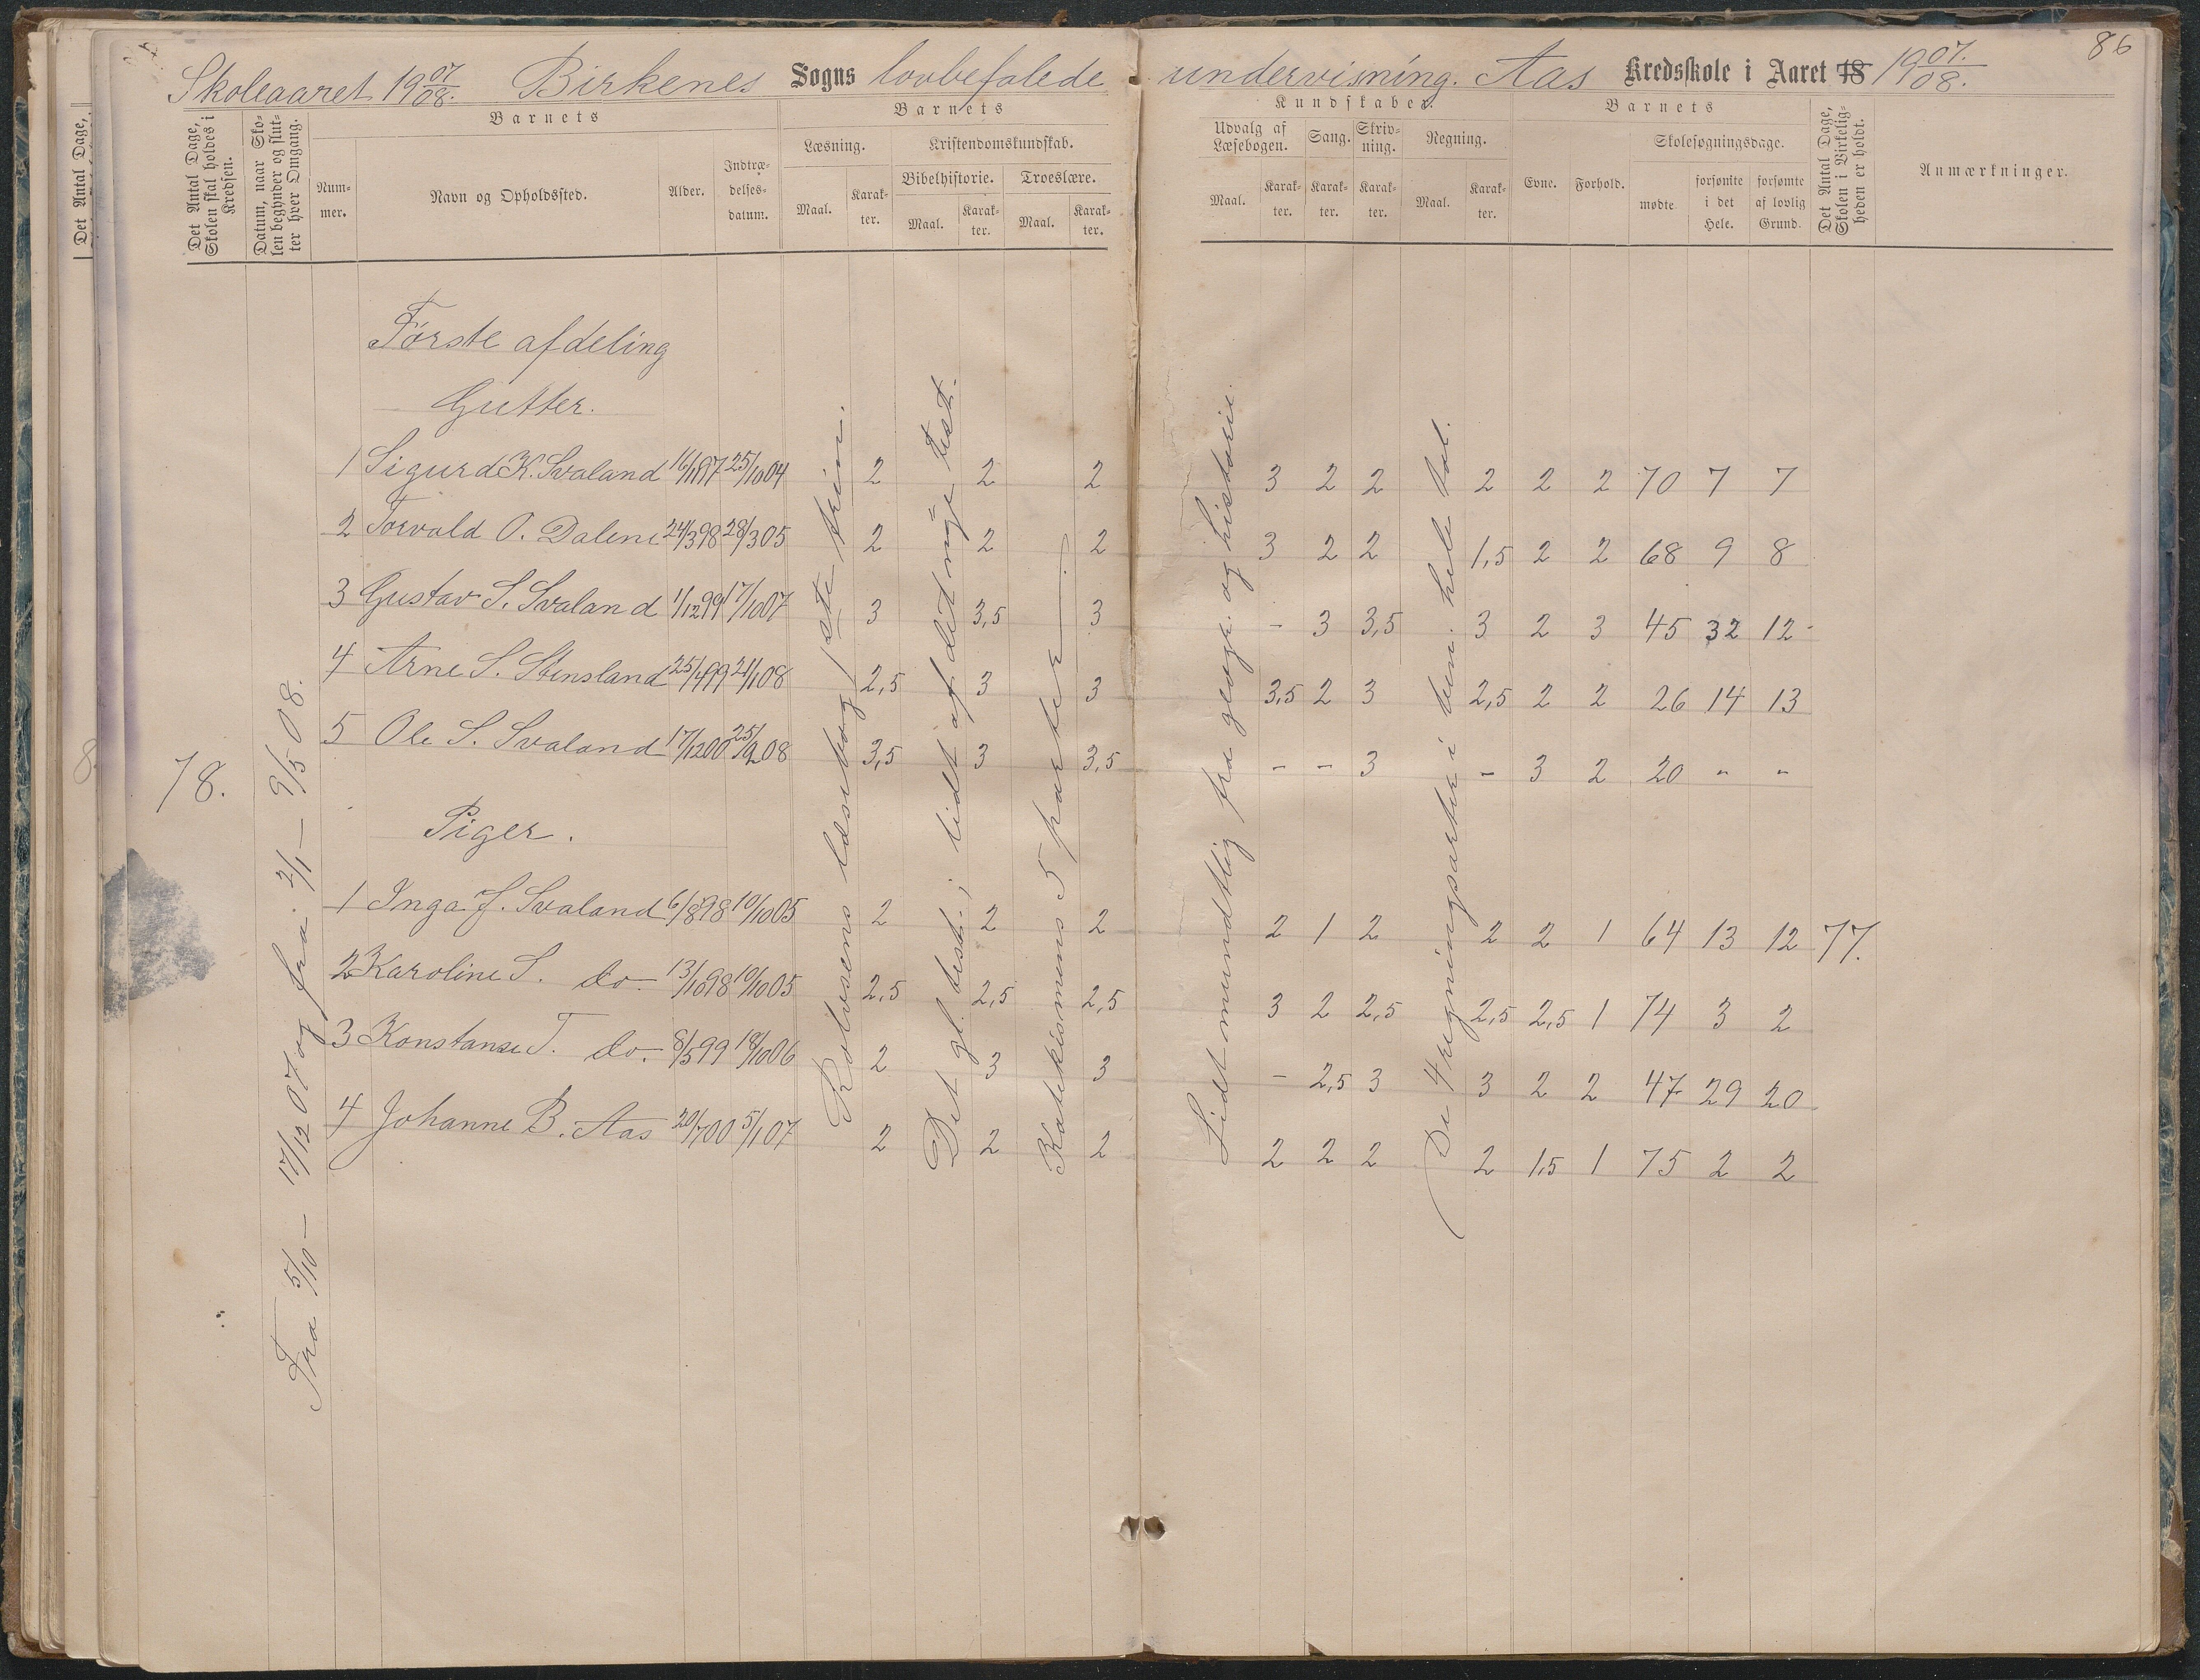 86
Skoleaaret 19 07/08. Birkenes Sogns lovbefalede undervisning. Aas Kredsskole i Aaret 18 19 07./08.
Det Antal Dage,
Det Antal Dage, Skolen skal holdes i Kredsen.
Datum, naar Skolen begynder og slutter hver Omgang.
Barnets
Nummer.
Navn og Opholdssted.
Alder.
Indtrædelsesdatum.
Barnets
Læsning.
Maal. Karakter.
Kristendomskundskab.
Bibelhistorie. Troeslære.
Maal. Karakter. Maal. Karakter.
Kundskaber.
Udvalg af Læsebogen. Sang. Skrivning. Regning.
Maal. Karakter. Karakter. Karakter. Maal. Karakter.
Barnets
Evne. Forhold.
Skolesøgningsdage.
mødte forsømte i det Hele. forsømte af lovlig Grund.
Det Antal Dage, Skolen i Virkeligheden er holdt.
Anmærkninger.
Første afdeling
Gutter.
1 Sigurd K. Svaland 16/1 97 25/10 04 2 2 2 3 2 2 2 2 2 70 7 7
2 Torvald O. Dalene 24/3 98 28/3 05 2 2 2 3 2 2 1,5 2 2 68 9 8
3 Gustav S. Svaland 1/12 99 17/10 07 3 3,5 3 - 3 3,5 3 2 3 45 32 12
4 Arne S. Stensland 25/4 99 21/1 08 2,5 3 3 3,5 2 3 2,5 2 2 26 14 13
5 Ole S. Svaland 17/12 00 25/2 08 3,5 3 3,5 - - 3 - 3 2 20 " "
78.
Piger.
1 Inga J. Svaland 6/8 98 10/10 05 2 2 2 2 1 2 2 2 1 64 13 12 77.
2 Karoline S. do. 13/10 98 10/10 05 2,5 2,5 2,5 3 2 2,5 2,5 2,5 1 74 3 2
3 Konstanse T. do. 8/5 99 18/10 06 2 3 3 - 2,5 3 3 2 2 47 29 20
4 Johanne B. Aas 20/7 00 5/1 07 2 2 2 2 2 2 2 1,5 1 75 2 2
Fra 5/10 – 17/12 07 og fra 2/1 – 9/5 08.
Rolvsens læsebog 1ste trin.
Det gl. test.; lidt af det nye test.
Katekismens 5 parter.
Lidt mundtlig fra geogr. og historie.
De 4 regningsarter i ben. hele tal.